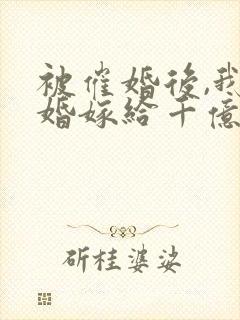 被催婚後,我
婚嫁給千億
斫桂婆娑